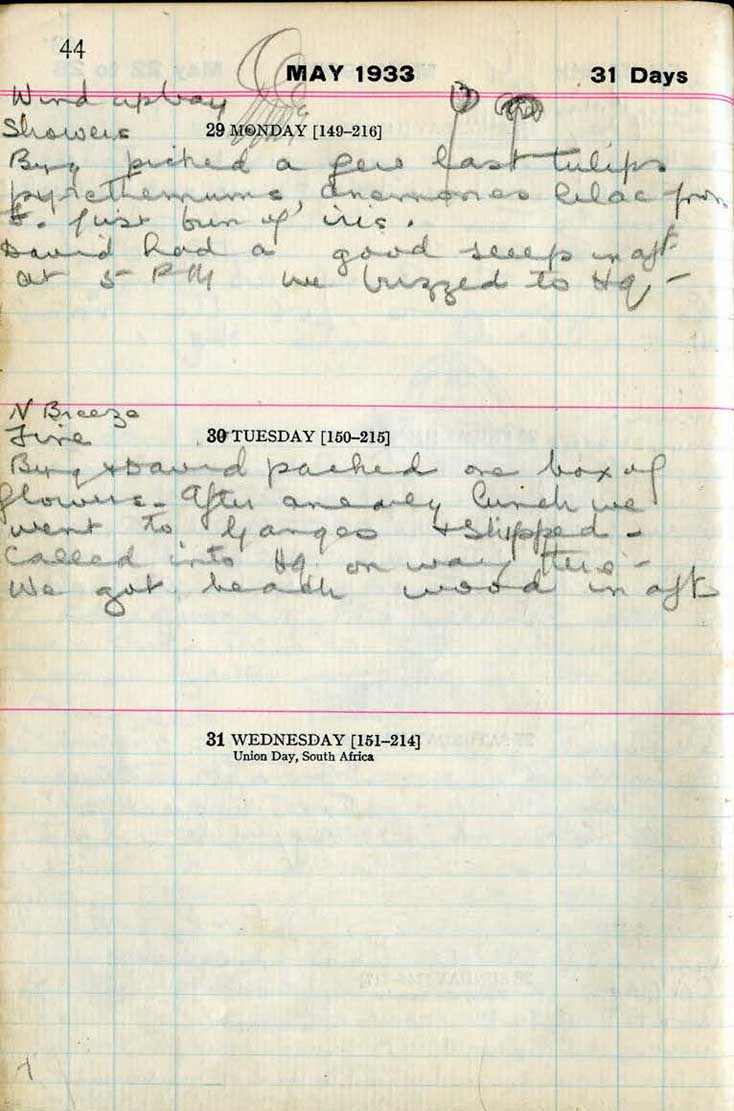 44
MAY 1933 31 Days
Wind up bay
Showers
29 MONDAY [149–216]
Byng picked a few last tulips
pyrethemums, anemones lilac from
first bun of iris.
David had a good sleep in aft
at 5 PM we buzzed to Hq –
N Breeze
Fine
30 TUESDAY [150–215]
Byng & David packed one box of
flowers. After an early lunch we
went to Ganges & Shipped –
Called into Hq. on way there –
We got beach wood in aft
31 WEDNESDAY [151–214]
Union Day, South Africa